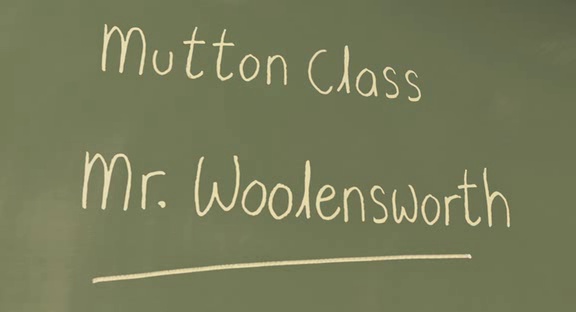 Mutton Class
Mr. Woolensworth